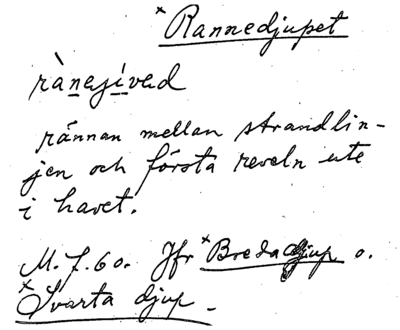 ×Rannedjupet
rànejíved
rännan mellan strandlin-
jen och första reveln ute
i havet.
M. f. 60. Jfr ×Breda djup o.
×Svarta djup.